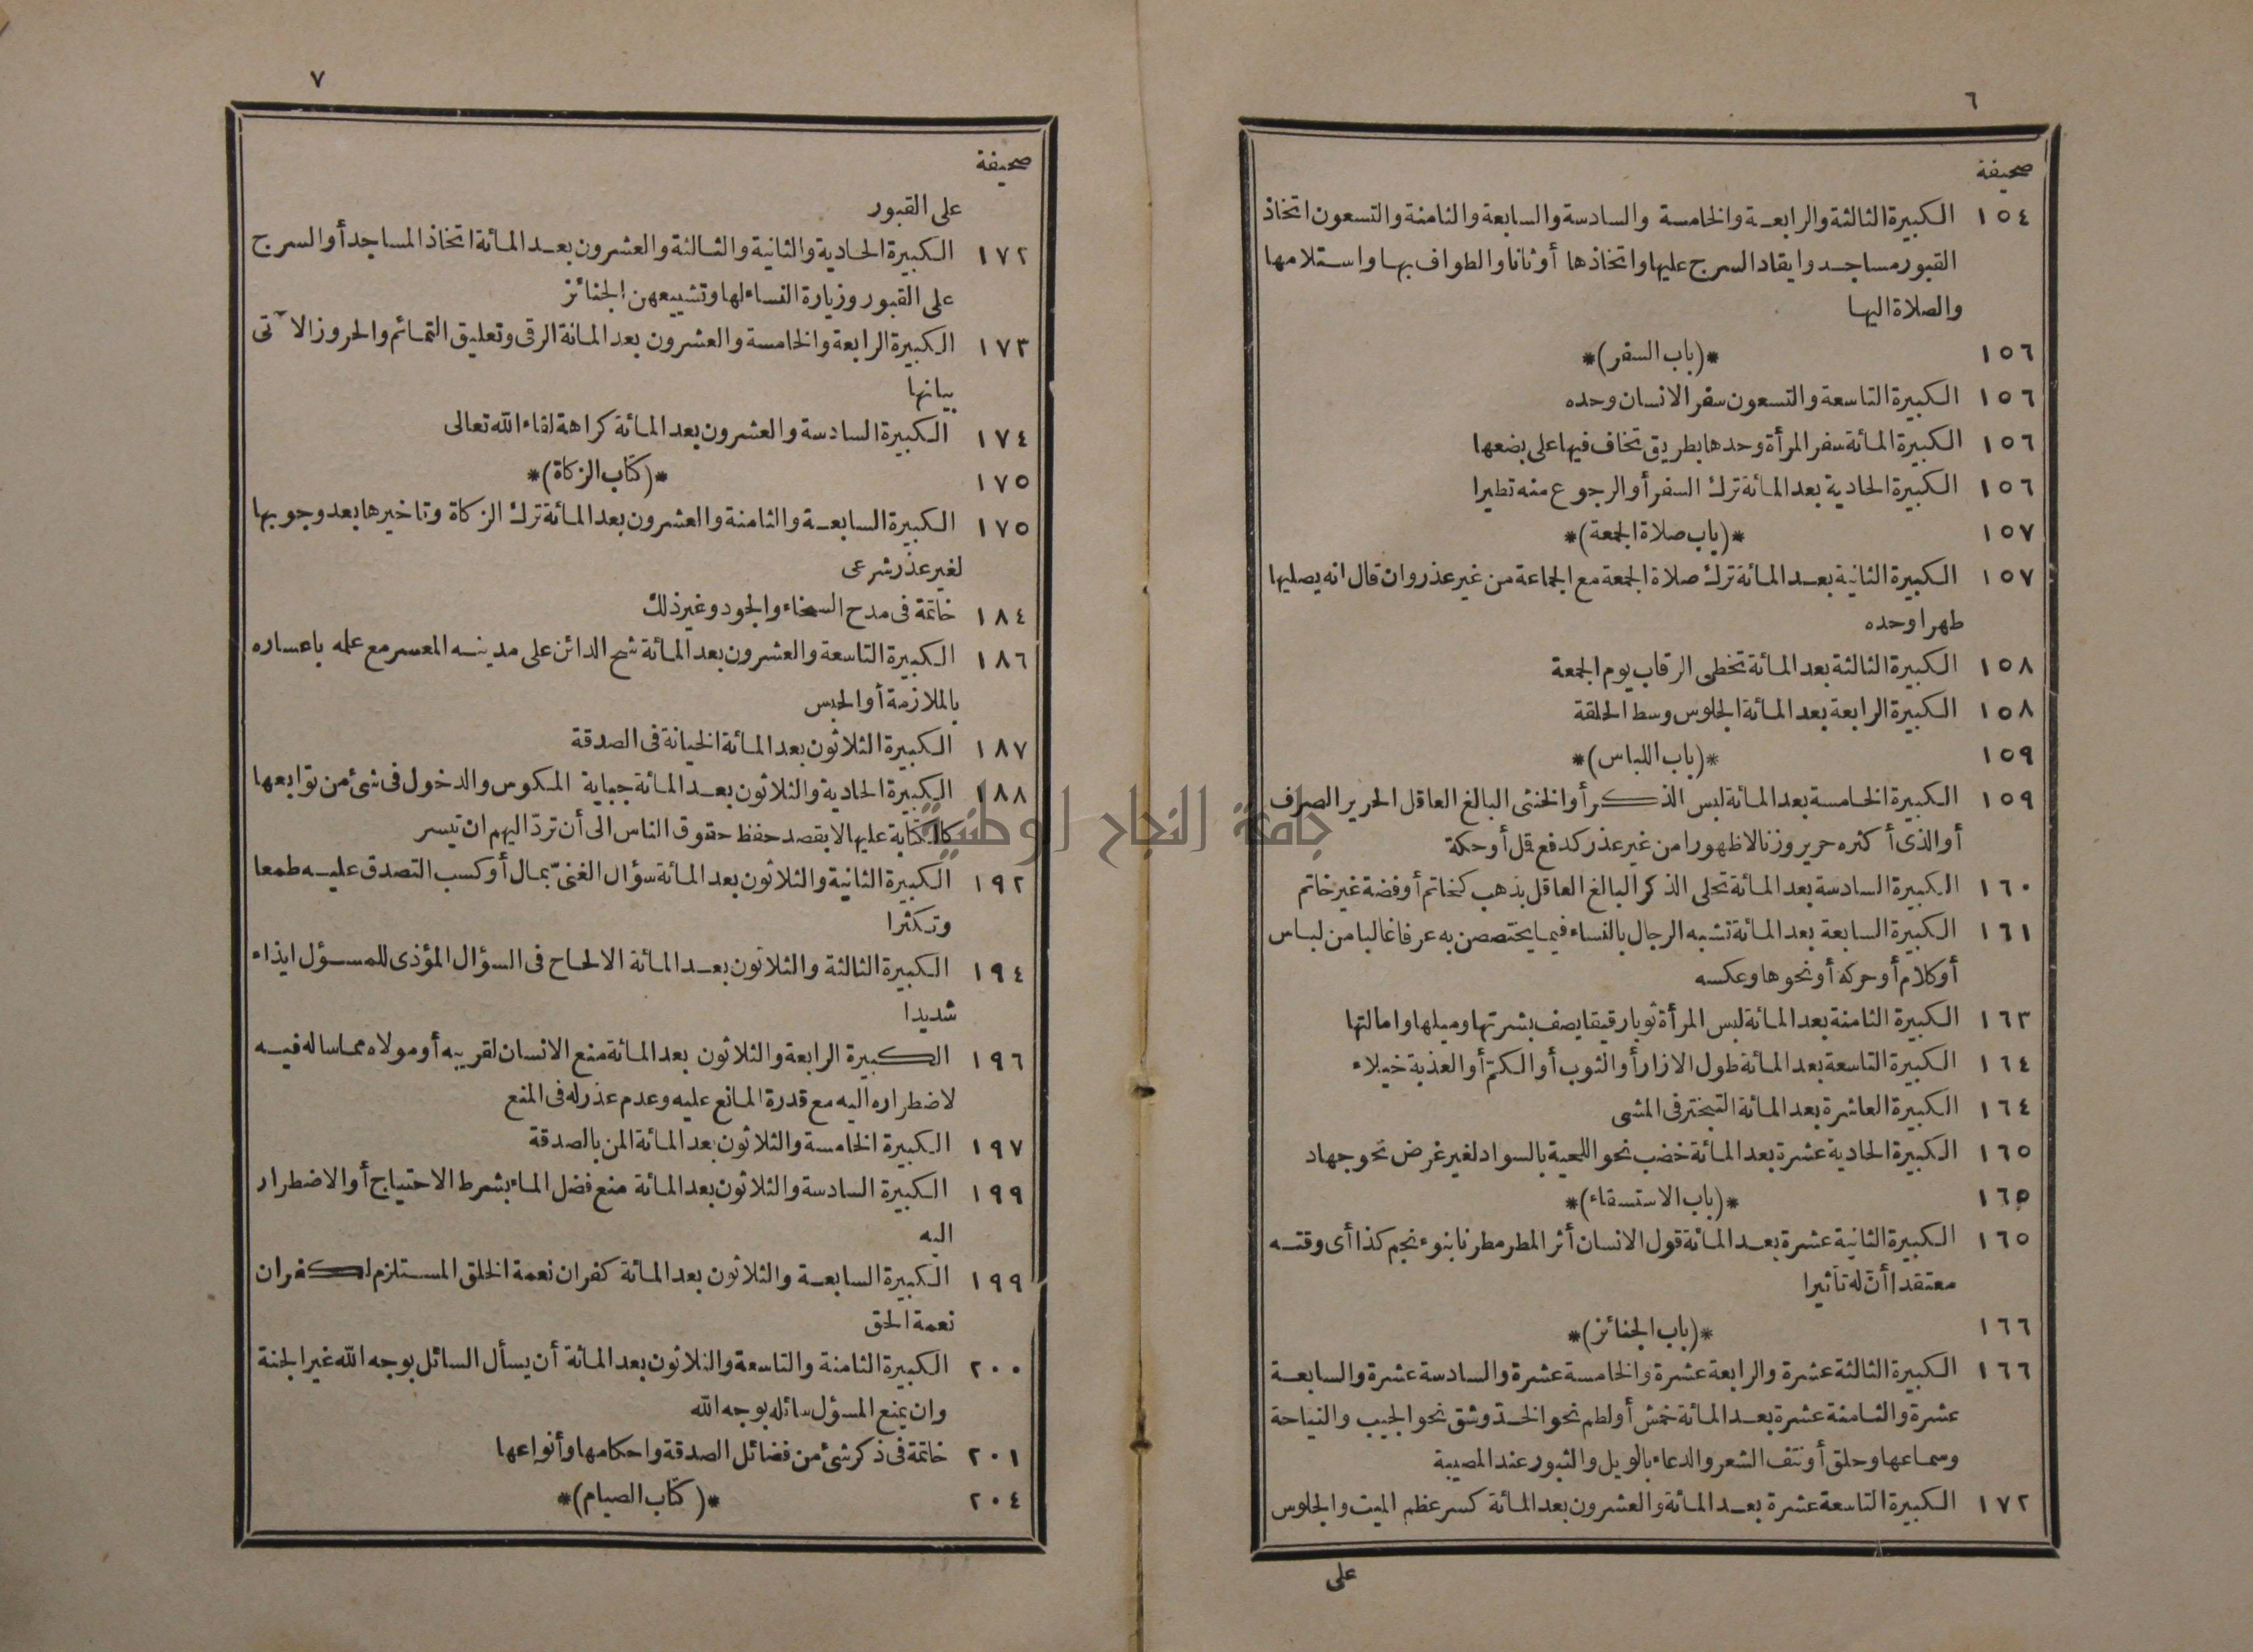 ٦
صحيفة
١٥٤ الكبيرة الثالثة والرابعة والخامسة والسادسة والسابعة والثامنة والتسعون اتخاذ
القبور مساجد وايقاد السرج عليها واتخاذها أوثانا والطواف بها واستلامها
والصلاة اليها
١٥٦ *(باب السفر)*
١٥٦ الكبيرة التاسعة والتسعون سفر الانسان وحده
١٥٦ الكبيرة المائة سفر المرأة وحدها بطريق تخاف فيها على بضعها
١٥٦ الكبيرة الحادية بعد المائة ترك السفر أو الرجوع منه تطيرا
١٥٧ *(باب صلاة الجمعة)*
١٥٧ الكبيرة الثانية بعد المائة ترك صلاة الجمعة مع الجماعة من غير عذر وان قال انه يصليها
ظهرا وحده
١٥٨ الكبيرة الثالثة بعد المائة تخطى الرقاب يوم الجمعة
١٥٨ الكبيرة الرابعة بعد المائة الجلوس وسط الحلقة
١٥٩ *(باب اللباس)*
١٥٩ الكبيرة الخامسة بعد المائة لبس الذكر أو الخنثى البالغ العاقل الحرير الصرف
أو الذى أكثره حرير وزنا لا ظهورا من غير عذر كدفع قمل أو حكة
١٦٠ الكبيرة السادسة بعد المائة تحلى الذكر البالغ العاقل بذهب كخاتم أو فضة غير خاتم
١٦١ الكبيرة السابعة بعد المائة تشبه الرجال بالنساء فيما يختصصن به عرفا غالبا من لباس
أو كلام أو حركة أو نحوها وعكسه
١٦٣ الكبيرة الثامنة بعد المائة لبس المرأة ثوبا رقيقا يصف بشرتها وميلها وامالتها
١٦٤ الكبيرة التاسعة بعد المائة طول الازار أو الثوب أو الكمّ أو العذبة خيلاء
١٦٤ الكبيرة العاشرة بعد المائة التبختر فى المشى
١٦٥ الكبيرة الحادية عشرة بعد المائة خضب نحو اللحية بالسواد لغير غرض نحو جهاد
١٦٥ *(باب الاستسقاء)*
١٦٥ الكبيرة الثانية عشرة بعد المائة قول الانسان أثر المطر مطرنا بنوء نجم كذا أى وقته
معتقدا أنّ له تأثيرا
١٦٦ *(باب الجنائز)*
١٦٦ الكبيرة الثالثة عشرة والرابعة عشرة والخامسة عشرة والسادسة عشرة والسابعة
عشرة والثامنة عشرة بعد المائة خمش أو لطم نحو الخدّ وشق نحو الجيب والنياحة
وسماعها وحلق أو نتف الشعر والدعاء بالويل والثبور عند المصيبة
١٧٢ الكبيرة التاسعة عشرة بعد المائة والعشرون بعد المائة كسر عظم الميت والجلوس
على
٧
صحيفة
على القبور
١٧٢ الكبيرة الحادية والثانية والثالثة والعشرون بعد المائة اتخاذ المساجد أو السرج
على القبور وزيارة النساء لها وتشييعهن الجنائز
١٧٣ الكبيرة الرابعة والخامسة والعشرون بعد المائة الرقى وتعليق التمائم والحروز الآتى
بيانها
١٧٤ الكبيرة السادسة والعشرون بعد المائة كراهة لقاء الله تعالى
١٧٥ *(كتاب الزكاة)*
١٧٥ الكبيرة السابعة والثامنة والعشرون بعد المائة ترك الزكاة وتاخيرها بعد وجوبها
لغير عذر شرعى
١٨٤ خاتمة فى مدح السخاء والجود وغير ذلك
١٨٦ الكبيرة التاسعة والعشرون بعد المائة شح الدائن على مدينه المعسر مع علمه باعساره
بالملازمة أو الحبس
١٨٧ الكبيرة الثلاثون بعد المائة الخيانة فى الصدقة
١٨٨ الكبيرة الحادية والثلاثون بعد المائة جباية المكوس والدخول فى شئ من توابعها
كالكتابة عليها لا بقصد حفظ حقوق الناس الى أن تردّ اليهم ان تيسر
١٩٢ الكبيرة الثانية والثلاثون بعد المائة سؤال الغنىّ بمال أو كسب التصدق عليه طمعا
وتكثرا
١٩٤ الكبيرة الثالثة والثلاثون بعد المائة الالحاح فى السؤال المؤذى للمسؤل ايذاء
شديدا
١٩٦ الكبيرة الرابعة والثلاثون بعد المائة منع الانسان لقريبه أو مولاه مما ساله فيه
لاضطراره اليه مع قدرة المانع عليه وعدم عذر له فى المنع
١٩٧ الكبيرة الخامسة والثلاثون بعد المائة المن بالصدقة
١٩٩ الكبيرة السادسة والثلاثون بعد المائة منع فضل الماء بشرط الاحتياج أو الاضطرار
اليه
١٩٩ الكبيرة السابعة والثلاثون بعد المائة كفران نعمة الخلق المستلزم لكفران
نعمة الحق
٢٠٠ الكبيرة الثامنة والتاسعة والثلاثون بعد المائة أن يسأل السائل بوجه الله غير الجنة
وان يمنع المسؤل سائله بوجه الله
٢٠١ خاتمة فى ذكر شئ من فضائل الصدقة واحكامها وأنواعها
٢٠٤ *(كتاب الصيام)*
جامعة النجاح الوطنية